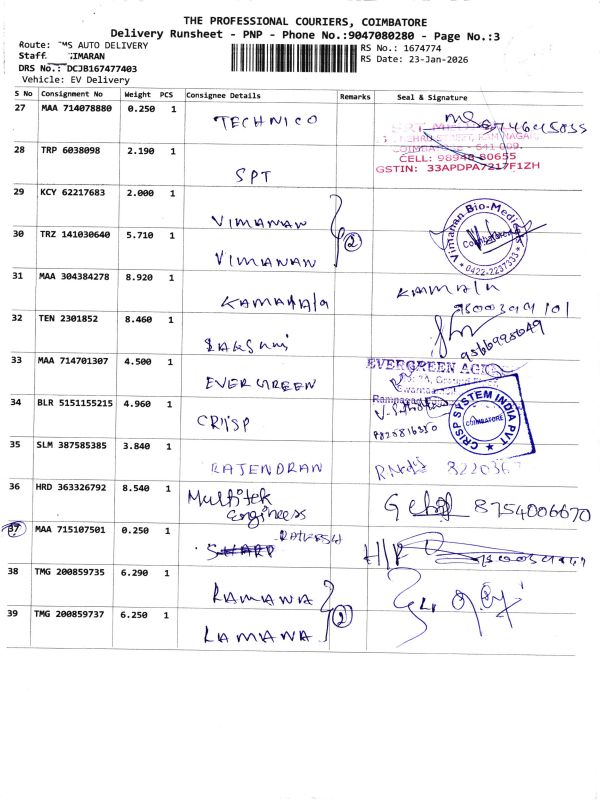 THE PROFESSIONAL COURIERS, COIMBATORE
Delivery Runsheet - PNP - Phone No.:9047080280 - Page No.:3
Route: MS AUTO DELIVERY
RS No.: 1674774
Staff IMARAN
RS Date: 23-Jan-2026
DRS No.: DCJB167477403
Vehicle: EV Delivery
S No Consignment No Weight PCS Consignee Details Remarks Seal & Signature
27 MAA 714078880 0.250 1 TECHNICO
COIMBATORE - 641 009.
CELL: 98948 80655
GSTIN: 33APDPA7217F1ZH
28 TRP 6038098 2.190 1 SPT
29 KCY 62217683 2.000 1 VIMANAN
Vimanan Bio-Medicals
Coimbatore
0422-2237333
30 TRZ 141030640 5.710 1 VIMANAN 2
31 MAA 304384278 8.920 1 KAMAHAla Kamala
32 TEN 2301852 8.460 1
33 MAA 714701307 4.500 1 EVERGREEN
EVERGREEN
34 BLR 5151155215 4.960 1 CRISP
CRISP SYSTEM INDIA PVT
COIMBATORE
35 SLM 387585385 3.840 1 RAJENDRAN
36 HRD 363326792 8.540 1 Multitek Engineers 8754006670
37 MAA 715107501 0.250 1
38 TMG 200859735 6.290 1 RAMANA
39 TMG 200859737 6.250 1 LAMANA 2